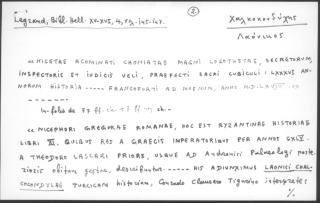 Legrand, Bibl. Hell. XV-XVI, 4, 145-147.
②
Χαλκοκονδύλης
Λαόνικος
«NICETAE ACOMINATI CHONIATAE MAGNI LOGOTHETAE, SECRETORUM,
INSPECTORIS ET IUDICIS VELI, PRAEFECTI SACRI CUBICULI: LXXXVI AN-
NORUM HISTORIA FRANCOFURTI AD MOENUM, ANNO M.D.L
In-folio de 77 ff.
«NICEPHORI GREGORAE ROMANAE, HOC EST BYZANTINAE HISTORIAE
LIBRI XI, QUIBUS RES A GRAECIS IMPERATORIBUS PER ANNOS CXLV.
A THEODORO LASCARI PRIORE, USQUE AD Andronici Palaeologi poste-
rioris obitum gestae, describuntur. HIS ADIUNXIMUS LAONICI CHAL-
COCONDYLAE TURCICAM historiam, Conrado Clausero Tigurino interprete:
%